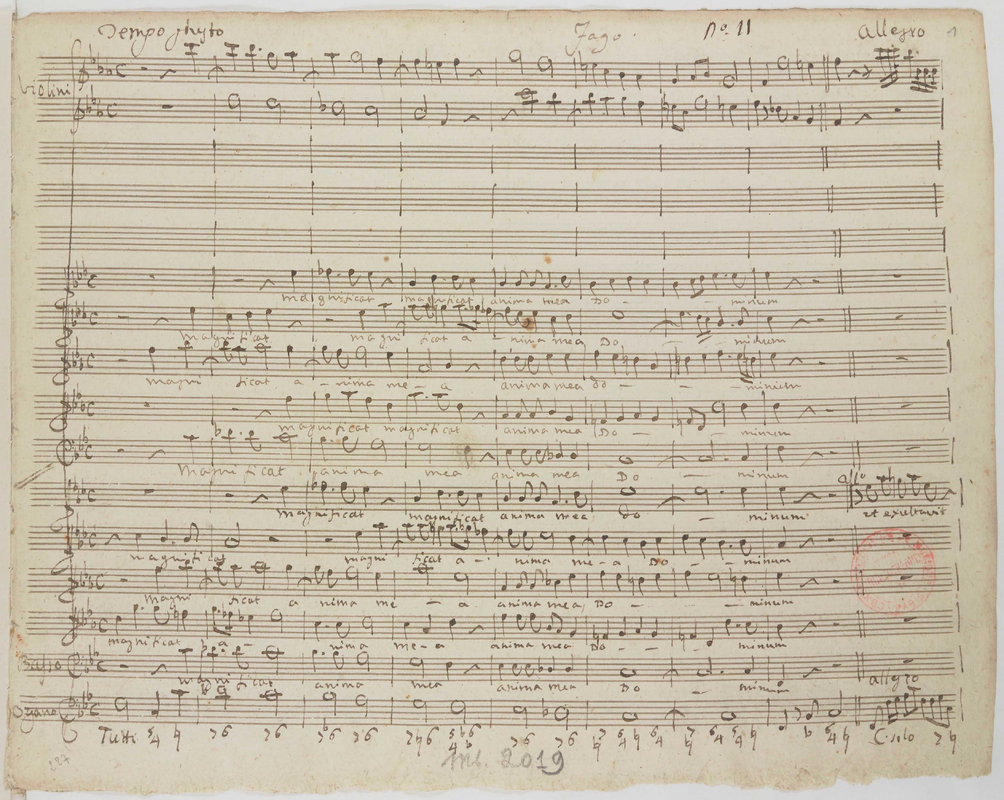 Tempo giusto Fago. No. 11 Allegro 1
Violini
magnificat magnificat anima mea Do - - minum
magnificat magnificat a - nima mea Do - - minum
magni ficat a - nima me - a anima mea do - - minum
magnificat magnificat anima mea Do - - minum
magnificat anima mea anima mea Do - minum
allo
magnificat magnificat anima mea do - minum et exultavit
magnificat magni ficat a - nima me - a Do - - minum
magni ficat a nima me - a anima mea Do - - minum
magnificat a - nima me - a anima mea Do - - minum
Basso
magnificat anima mea anima mea Do - minum
allegro
Organo
Tutti C. solo
Ms. 2019